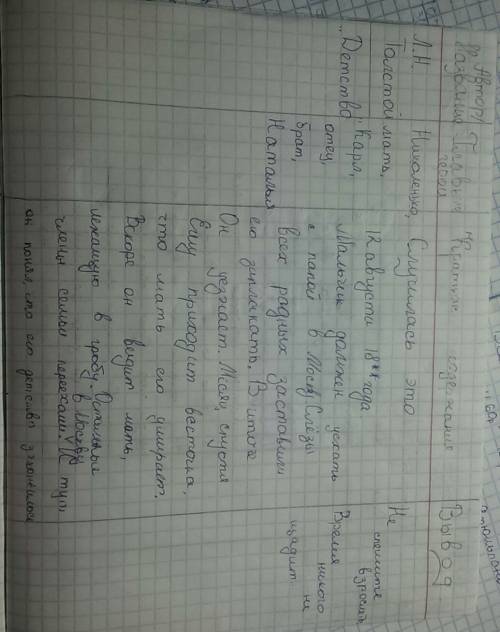 Автор/
Название
Главные
герои
Краткое содержание
Вывод
Л.Н.
Толстой
„Детство"
Николенька,
мать,
Карл,
отец,
брат,
Наталья
Случилась это
12 августа 18** года
Мальчик должен уехать
с папой в Москву. Слёзы
всех родных заставили
его заплакать. В итоге
Он уезжает. Месяц спустя
Ему приходит весточка,
что мать его умирает.
Вскоре он видит мать,
лежащую в гробу. Остальные
члены семьи переехали в Москву
И тут
он понял, что его детство закончилось
Не
спешите
взрослеть
Время
никого
не щадит